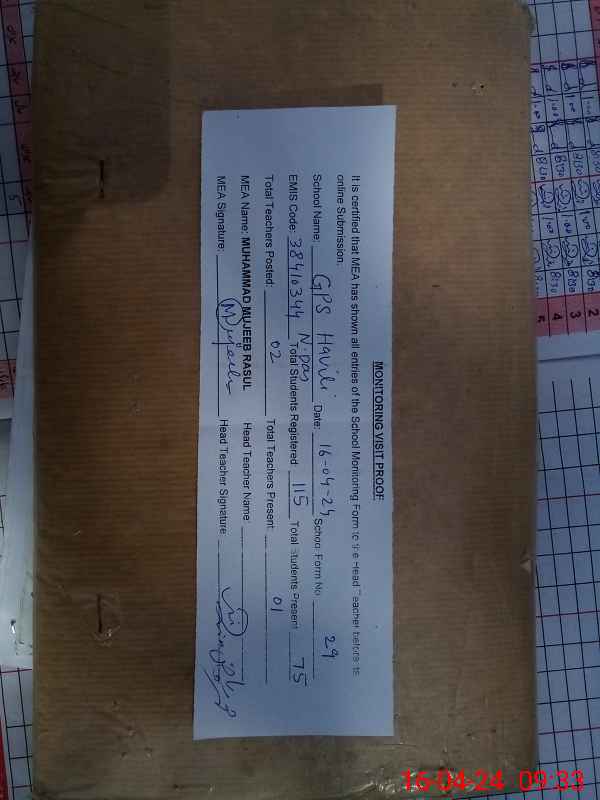 MONITORING VISIT PROOF
It is certified that MEA has shown all entries of the School Monitoring Form to the Head Teacher before its
online Submission.
School Name: GPS Havili Date: 16-04-24 School Form No 29
N. Das
EMIS Code: 38410344 Total Students Registered: 115 Total Students Present 75
Total Teachers Posted: 02 Total Teachers Present: 01
MEA Name: MUHAMMAD MUJEEB RASUL Head Teacher Name:
MEA Signature: Mujeeb Head Teacher Signature:
16-04-24 09:33